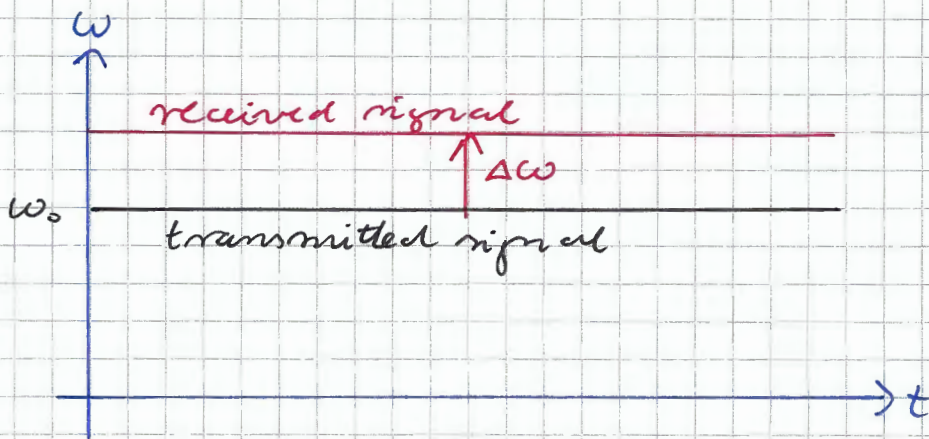 ω
received signal
Δω
ω₀
transmitted signal
t